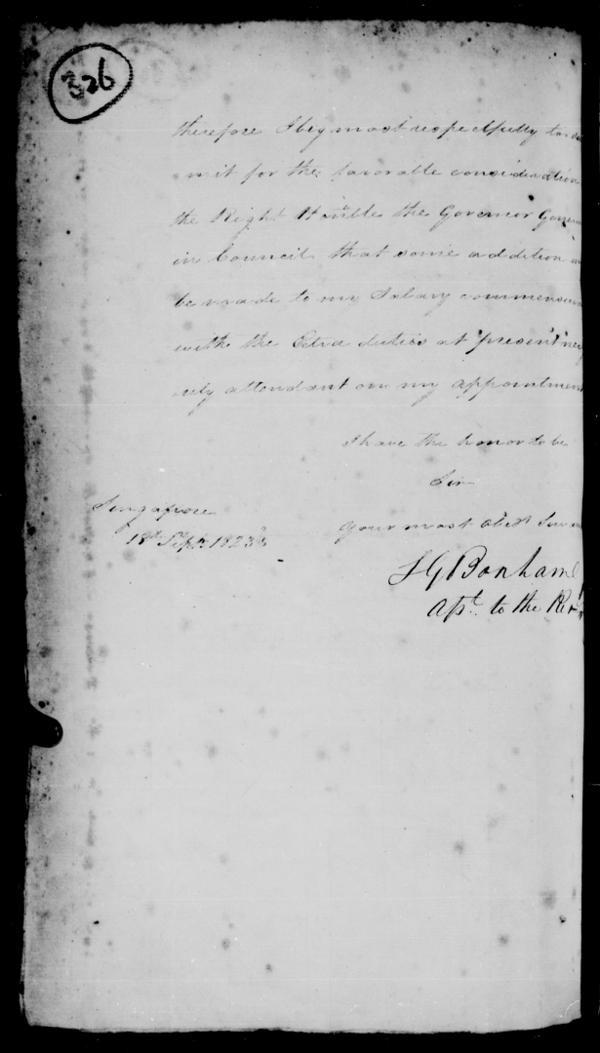 326
therefore I beg most respectfully to
mit for the favorable consideration
the Right Honble the Governor Gene
in Council that some addition
be made to my Salary commensu
with the Extra duties at present
attendant on my appointment
I have the honor to be
Sir
Singapore
Your most Obedt
18th Septr 1823
SGBonham
Asst. to the Re